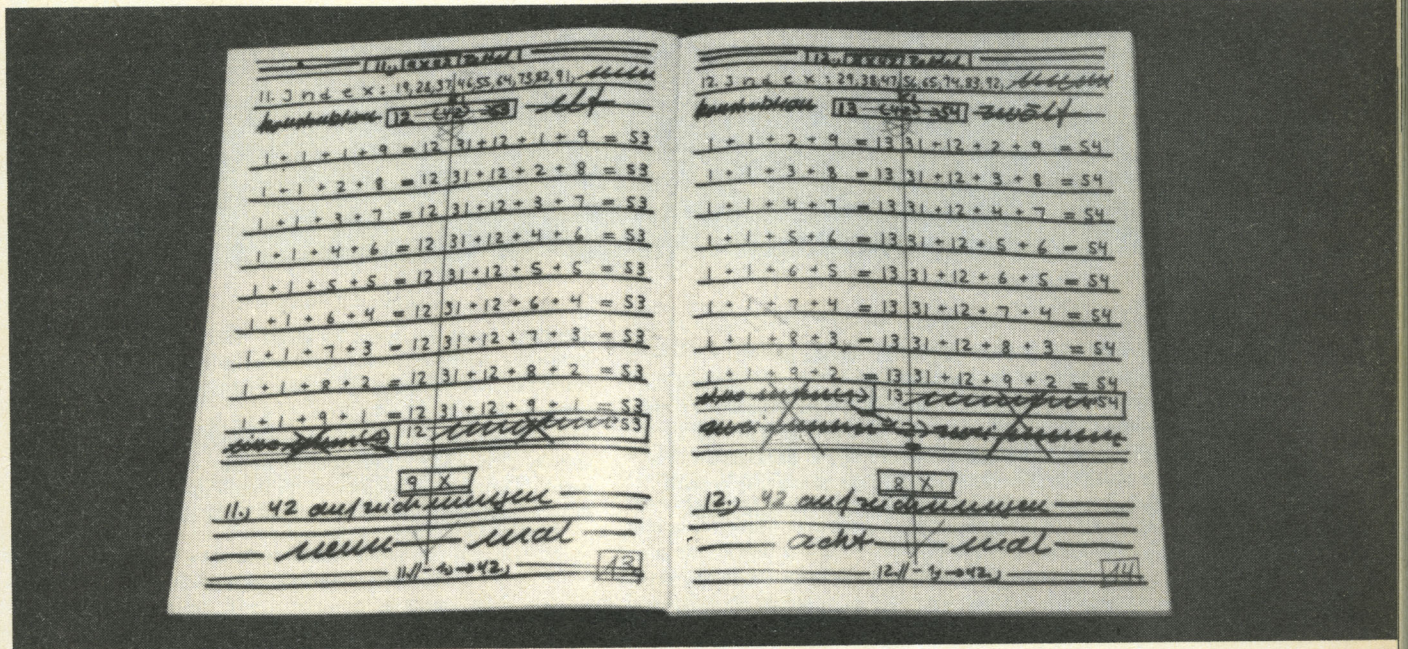 11., 9 x 42 Zettel
11. Index: 19,28,37,46,55,64,73,82,91, neun
konstruktion 12 (42) 53 elf
1 + 1 + 1 + 9 = 12 31+12 + 1 + 9 = 53
1 + 1 + 2 + 8 = 12 31+12 + 2 + 8 = 53
1 + 1 + 3 + 7 = 12 31+12 + 3 + 7 = 53
1 + 1 + 4 + 6 = 12 31+12 + 4 + 6 = 53
1 + 1 + 5 + 5 = 12 31+12 + 5 + 5 = 53
1 + 1 + 6 + 4 = 12 31+12 + 6 + 4 = 53
1 + 1 + 7 + 3 = 12 31+12 + 7 + 3 = 53
1 + 1 + 8 + 2 = 12 31+12 + 8 + 2 = 53
1 + 1 + 9 + 1 = 12 31+12 + 9 + 1 = 53
12 53
9 X
11., 42 aufzeichnungen
neun mal
13
12., 8 x 42 Zettel
12. Index: 29,38,47,56,65,74,83,92,
konstruktion 13 (42) 54 zwölf
1 + 1 + 2 + 9 = 13 31+12 + 2 + 9 = 54
1 + 1 + 3 + 8 = 13 31+12 + 3 + 8 = 54
1 + 1 + 4 + 7 = 13 31+12 + 4 + 7 = 54
1 + 1 + 5 + 6 = 13 31+12 + 5 + 6 = 54
1 + 1 + 6 + 5 = 13 31+12 + 6 + 5 = 54
1 + 1 + 7 + 4 = 13 31+12 + 7 + 4 = 54
1 + 1 + 8 + 3 = 13 31+12 + 8 + 3 = 54
1 + 1 + 9 + 2 = 13 31+12 + 9 + 2 = 54
13 54
zwei zwei
8 X
12., 42 aufzeichnungen
acht mal
14